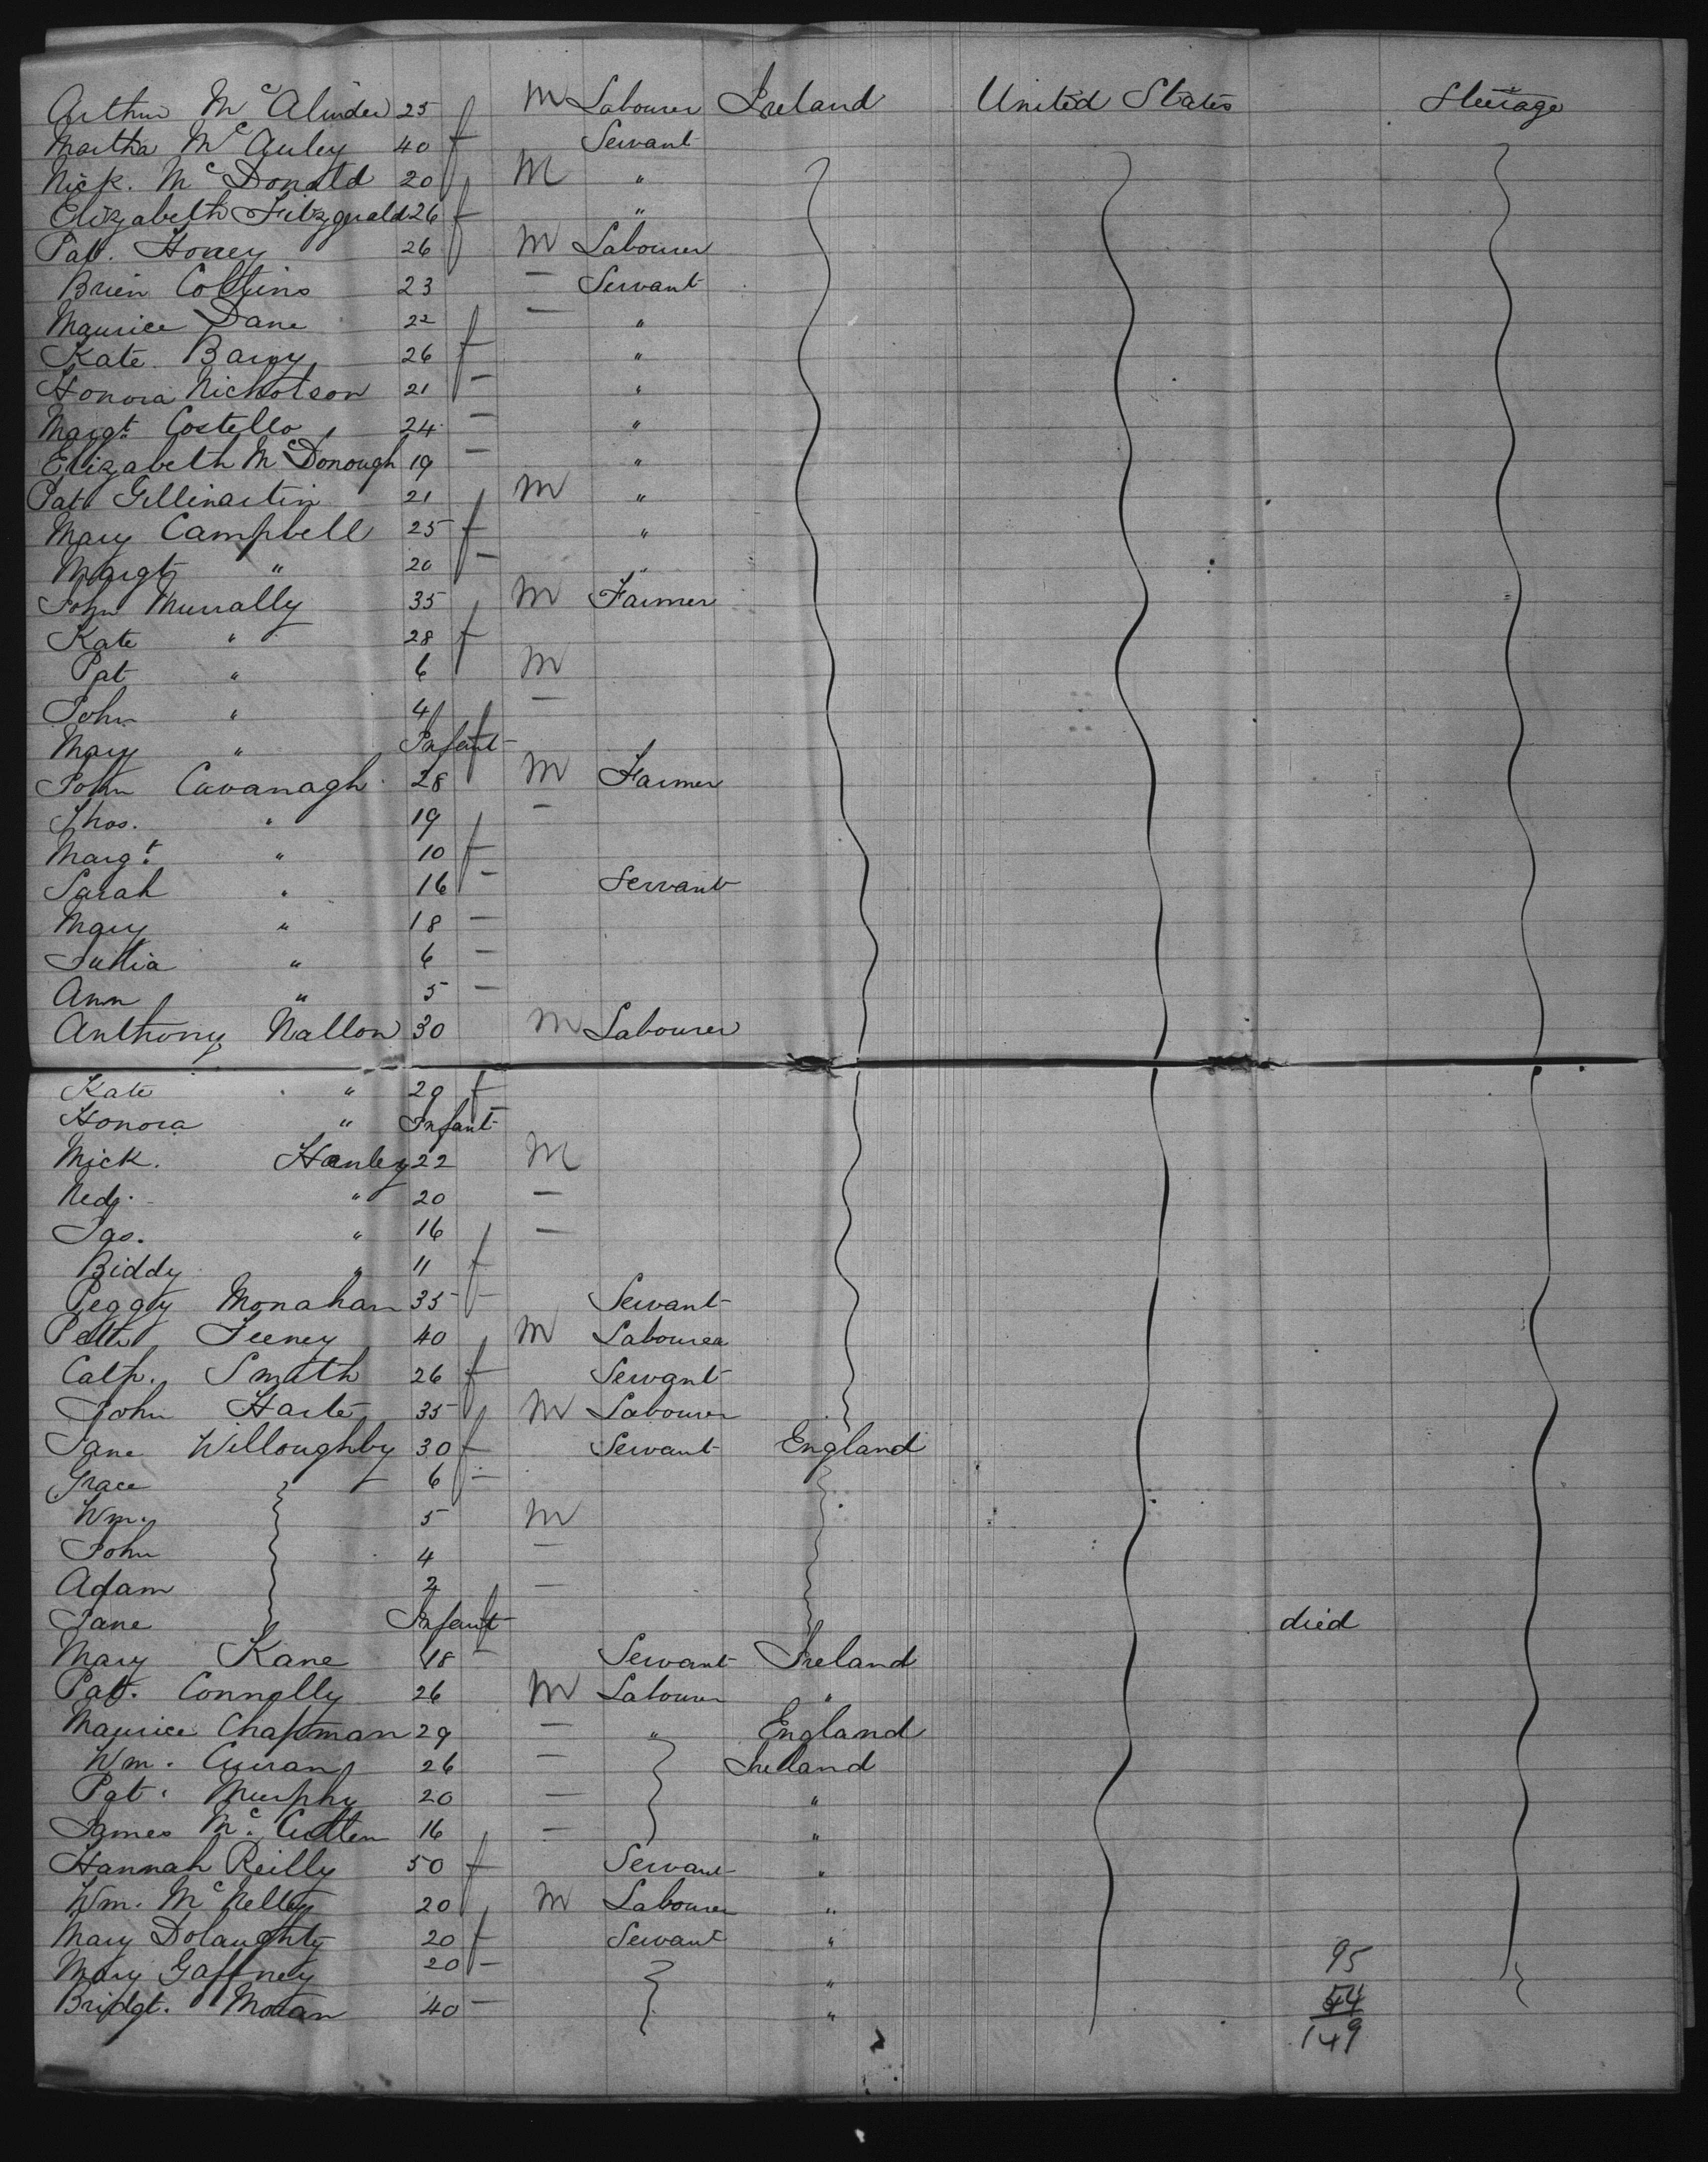 Arthur McAlinder 25 M Labourer Ireland United States Steerage
Martha McAuley 40 f Servant
Nick. McDonald 20 M "
Elizabeth Fitzgerald 26 f "
Pat. Honey 26 M Labourer
Brien Collins 23 — Servant
Maurice Dane 22 — "
Kate Barry 26 f "
Honora Nicholson 21 — "
Margt. Costello 24 — "
Elizabeth McDonough 19 — "
Pat Gillinartin 21 M "
Mary Campbell 25 f "
Margt " 20 — "
John Murrally 35 M Farmer
Kate " 28 f
Pat " 6 M
John " 4 —
Mary " Infant f
John Cavanagh 28 M Farmer
Thos. " 19 —
Margt. " 10 f
Sarah " 16 — Servant
Mary " 18 —
Julia " 6 —
Ann " 5 —
Anthony Nallon 30 M Labourer
Kate " 29 f
Honora " Infant —
Mick. Hanley 22 M
Ned. " 20 —
Jas. " 16 —
Biddy " 11 f
Peggy Monahan 35 — Servant
Peter Feeney 40 M Labourer
Cath. Smith 26 f Servant
John Harte 35 M Labourer
Jane Willoughby 30 f Servant England
Grace 6 —
Wm. 5 M
John 4 —
Adam 2 —
Jane Infant f died
Mary Kane 18 — Servant Ireland
Pat. Connolly 26 M Labourer "
Maurice Chapman 29 — " England
Wm. Curran 26 — Ireland
Pat. Murphy 20 — "
James Mc. Cutten 16 — "
Hannah Reilly 50 f Servant "
Wm. McNelly 20 M Labourer "
Mary Dolaughty 20 f Servant "
Mary Gaffney 20 — "
Bridgt. Moran 40 — "
95
54
149